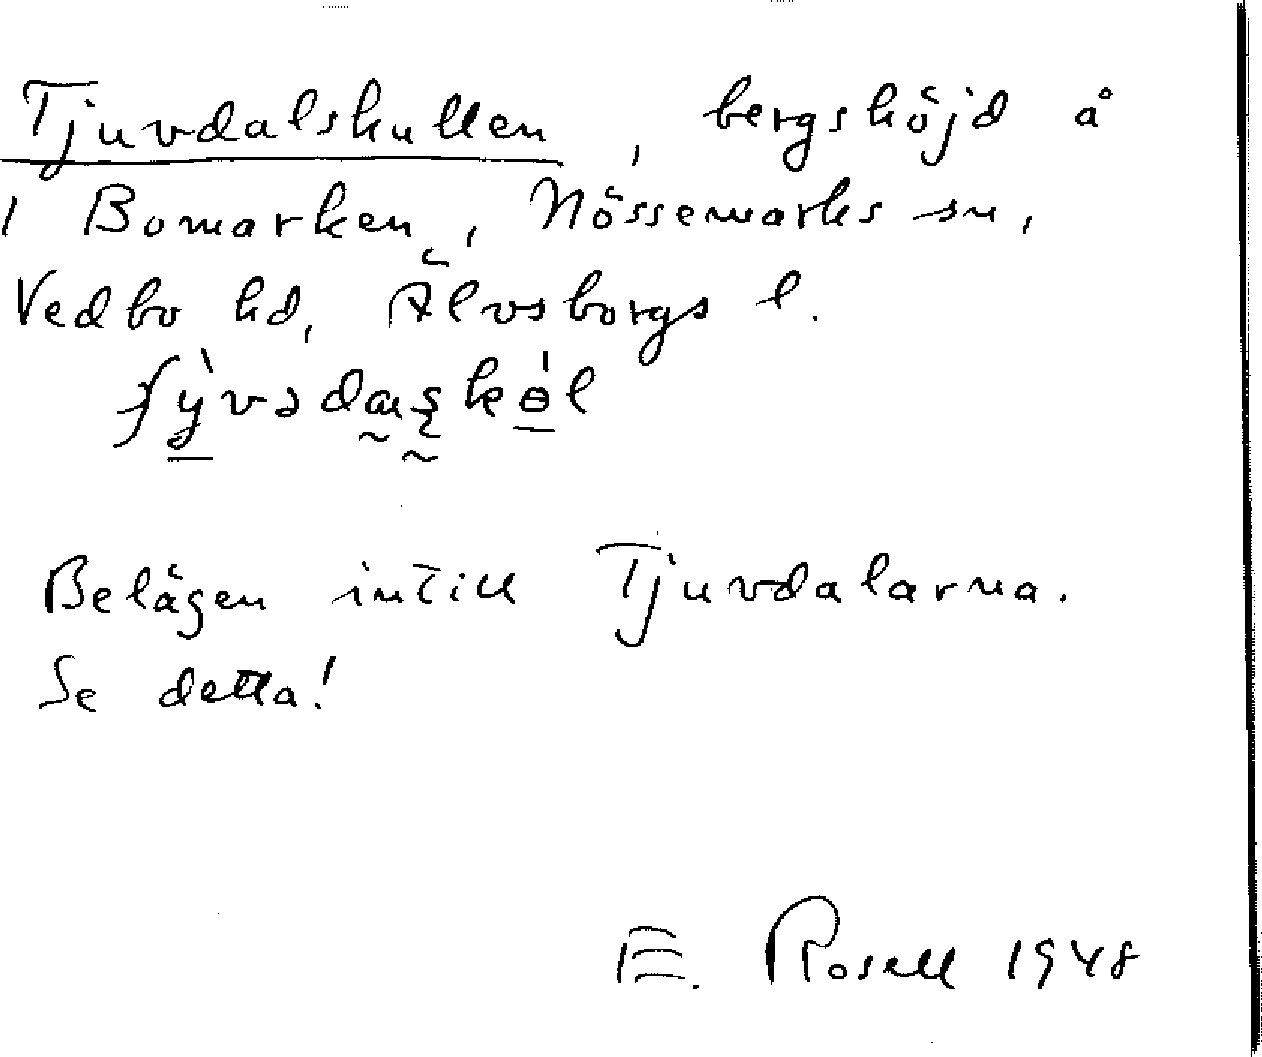 Tjuvdalskullen, bergshöjd å
1 Bomarken, Nössemarks sn,
Vedbo hd, Älvsborgs l.
Belägen intill Tjuvdalarna.
Se detta!
E. Rosell 1948